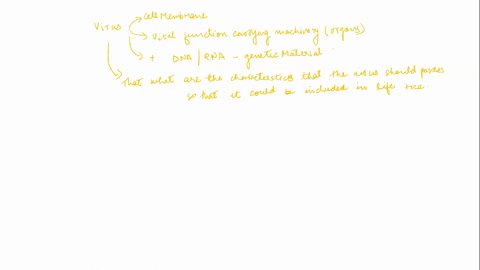 Virus
cell Membrane
Vital function carrying machinery (organs)
+ DNA / RNA - genetic Material
That what are the characterstics that the virus should posses
so that it could be included in life tree